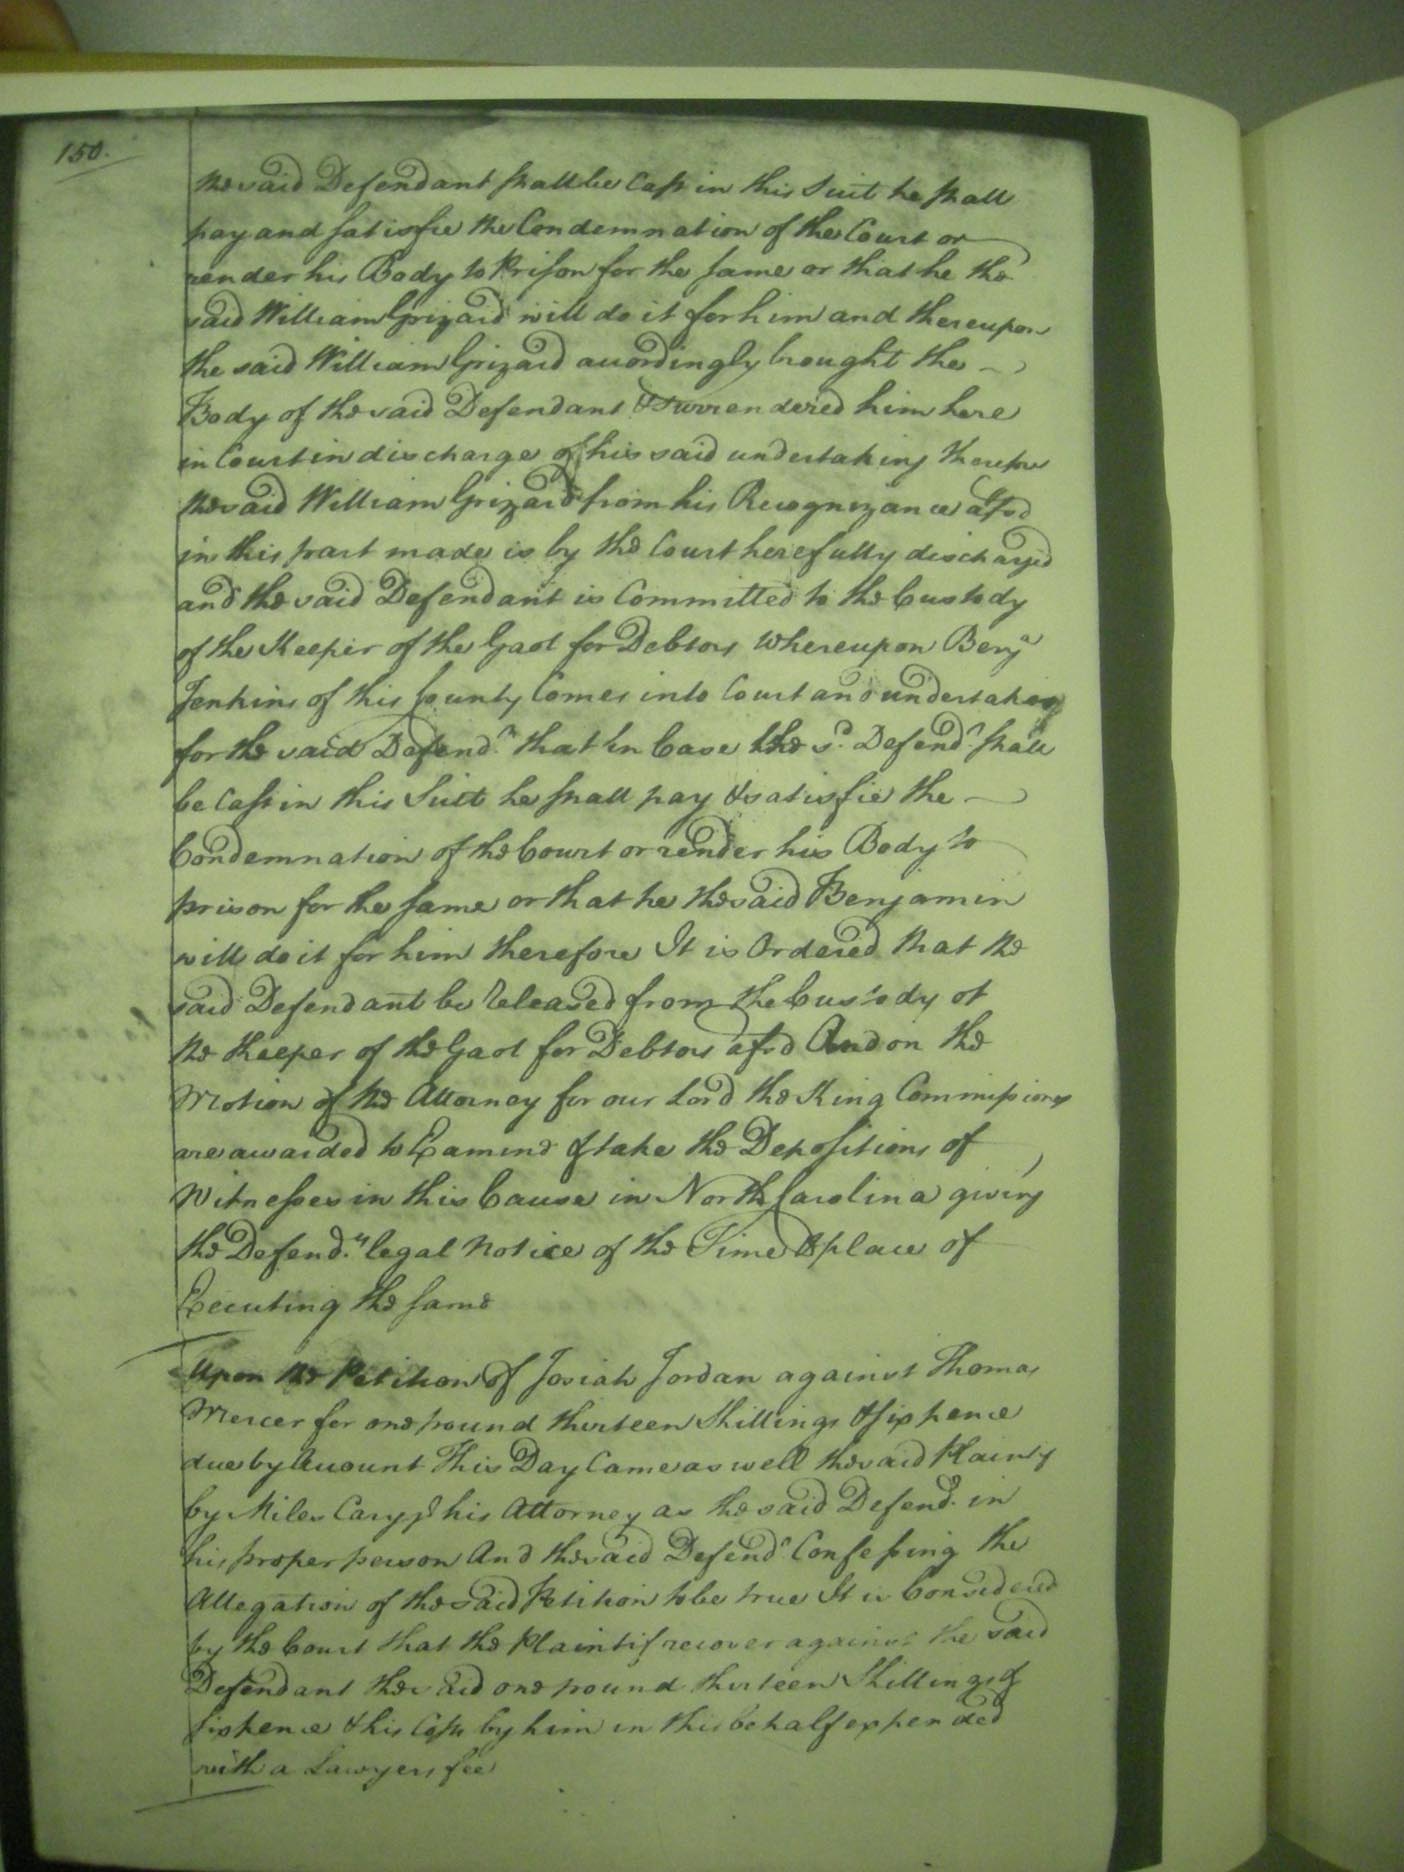 150.
the said Defendant shall be Cast in this Suit he shall
pay and satisfie the Condemnation of the Court or
render his Body to Prison for the same or that he the
said William Grizard will do it for him and thereupon
the said William Grizard accordingly brought the
Body of the said Defendant & surrendered him here
in Court in discharge of his said undertaking therefore
the said William Grizard from his Recognizance afsd
in this part made is by the Court here fully discharged
and the said Defendant is Committed to the Custody
of the Keeper of the Gaol for Debtors Whereupon Benja
Jenkins of this County Comes into Court and undertakes
for the said Defend.t that in Case the sd. Defend.t shall
be Cast in this Suit he shall pay & satisfie the
Condemnation of the Court or render his Body to
prison for the same or that he the said Benjamin
will do it for him therefore It is Ordered that the
said Defendant be released from the Custody of
the Keeper of the Gaol for Debtors afsd And on the
Motion of the Attorney for our Lord the King Commissions
are awarded to Examine & take the Depositions of
Witnesses in this Cause in North Carolina giving
the Defend.t legal Notice of the Time & place of
Executing the same
Upon the Petition of Josiah Jordan against Thomas
Mercer for one pound thirteen Shillings & sixpence
due by Account This Day Came as well the said Plaintif
by Miles Cary his Attorney as the said Defend.t in
his proper person And the said Defend.t Confessing the
Allegation of the said Petition to be true It is Considered
by the Court that the Plaintif recover against the said
Defendant the said one pound thirteen Shillings &
sixpence & his Costs by him in this behalf expended
with a Lawyers fee